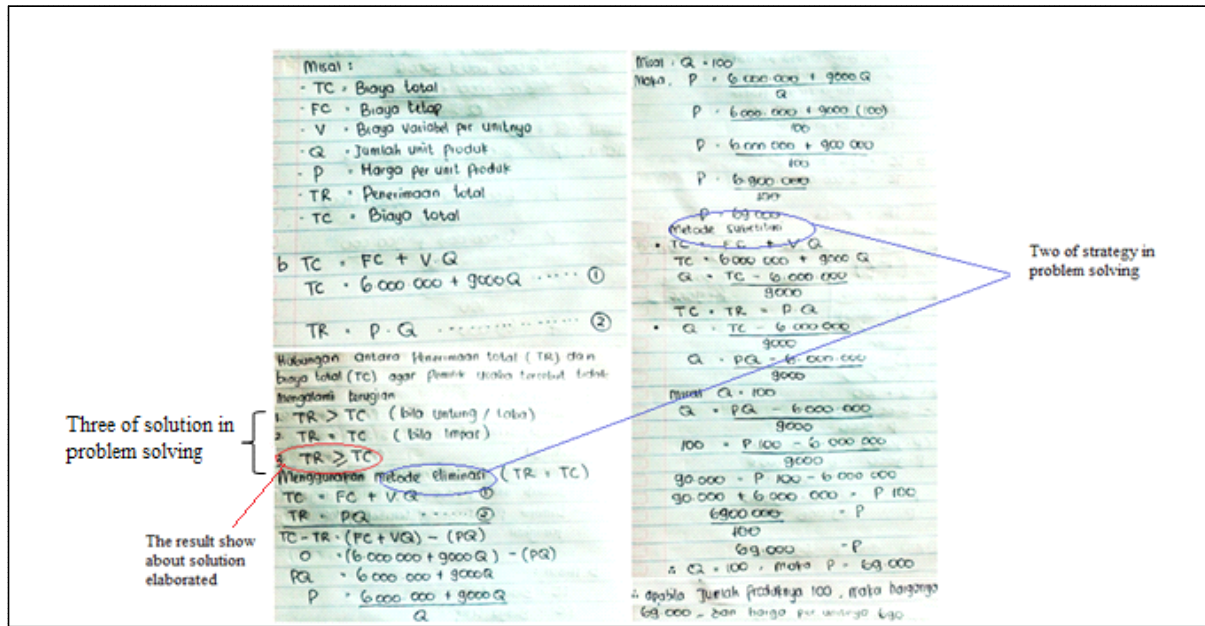 Misal :
- TC = Biaya total
- FC = Biaya tetap
- V = Biaya variabel per unitnya
- Q = Jumlah unit produk
- P = Harga per unit produk
- TR = Penerimaan total
- TC = Biaya total
b TC = FC + V.Q
TC = 6.000.000 + 9000Q ..... ①
TR = P.Q ................ ②
Hubungan antara Penerimaan total (TR) dan
biaya total (TC) agar pemilik usaha tersebut tidak
mengalami kerugian
1. TR > TC (bila untung / laba)
2. TR = TC (bila impas)
3. TR ≥ TC
Menggunakan metode eliminasi (TR = TC)
TC = FC + V.Q ①
TR = PQ ...... ②
TC - TR = (FC + VQ) - (PQ)
0 = (6.000.000 + 9000Q) - (PQ)
PQ = 6.000.000 + 9000Q
P = 6.000.000 + 9000Q
Q
Three of solution in
problem solving
The result show
about solution
elaborated
Misal : Q = 100
Maka, P = 6.000.000 + 9000Q
Q
P = 6.000.000 + 9000 (100)
100
P = 6.000.000 + 900.000
100
P = 6.900.000
100
P = 69.000
Metode Substitusi
• TC = FC + V.Q
TC = 6.000.000 + 9000Q
Q = TC - 6.000.000
9000
TC = TR = P.Q
• Q = TC - 6.000.000
9000
Q = PQ - 6.000.000
9000
Misal Q = 100
Q = PQ - 6.000.000
9000
100 = P.100 - 6.000.000
9000
90.000 = P 100 - 6.000.000
90.000 + 6.000.000 = P 100
6900.000 = P
100
69.000 = P
∴ Q = 100, maka P = 69.000
∴ apabila Jumlah Produknya 100, maka harganya
69.000, dan harga per unitnya 690
Two of strategy in
problem solving